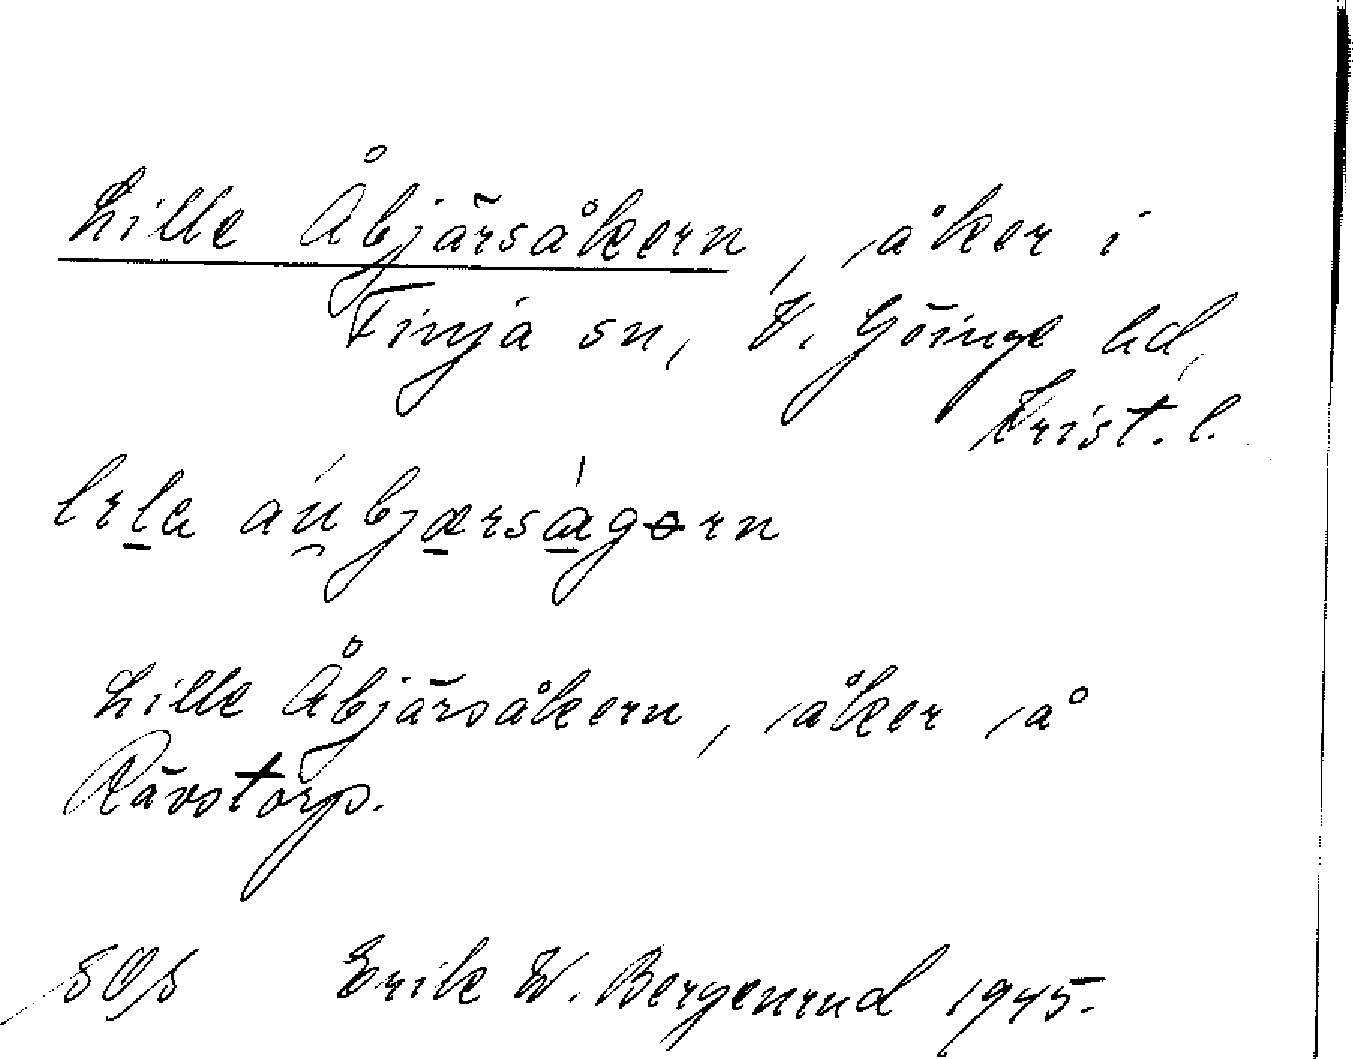 Lille Åbjärsåkern, åker i
Finja sn, V. Göinge hd,
Krist. l.
Lille Åbjärsåkern, åker på
Rävstorp.
SOS Erik W. Bergenrud 1945.